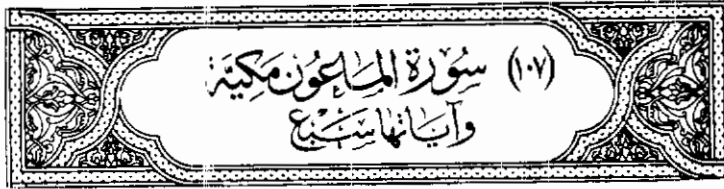 (١٠٧) سُورَةُ المَاعُون مَكيَّة
وَآيَاتُهَا سَبْع